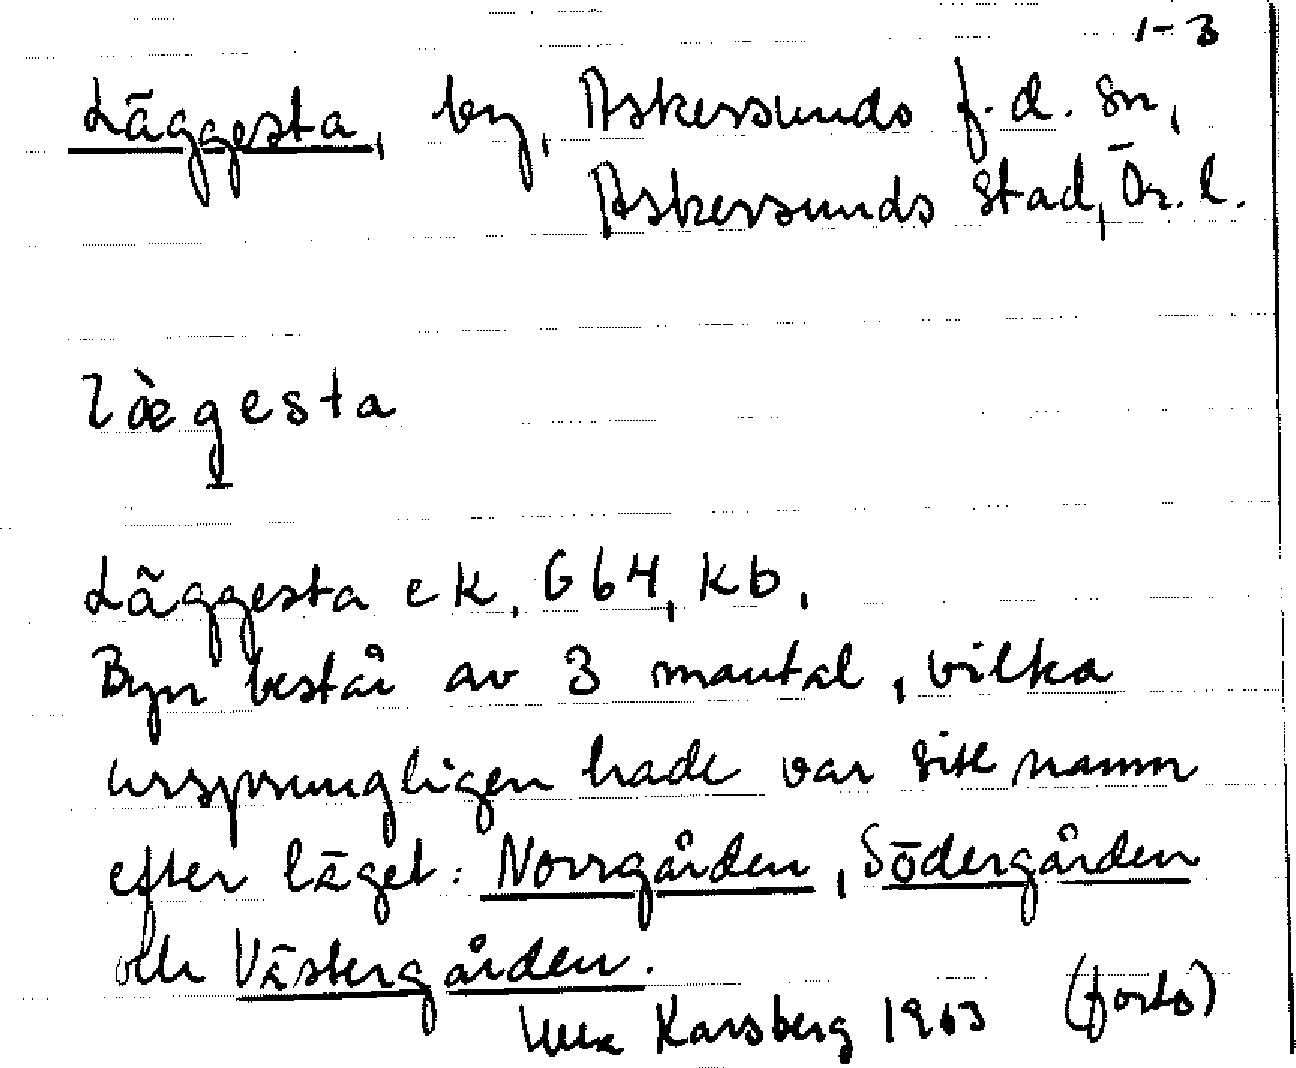 1-3
Läggesta, by, Askersunds f.d. sn,
Askersunds stad, Ör. l.
lὰgesta
Läggesta ek. G64, kb,
Byn består av 3 mantal, vilka
ursprungligen hade var sitt namn
efter läget: Norrgården, Södergården
och Västergården.
Ulla Karsberg 1963 (forts)